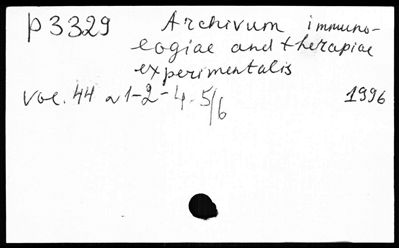 p 3329 Archivum immuno-
logiae and therapiae
experimentalis
vol. 44 N 1-2-4-5/6 1996